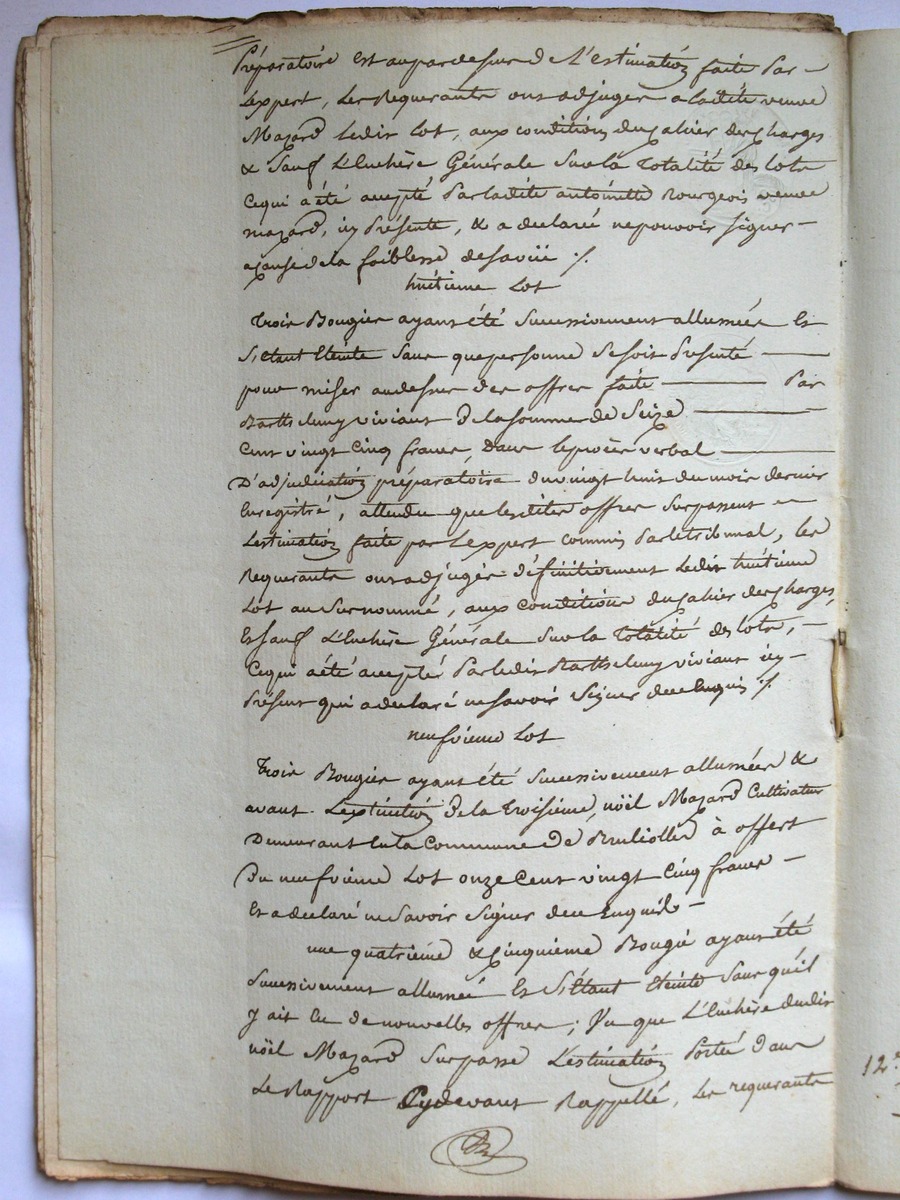 Préparatoire est aupardessus de L'estimation faite Par
Lexpert, Les Requerants ont adjuger a laditte veuve
Mazard Ledit Lot, aux conditions du Cahier des Charges
& Sauf L'Enchère Générale Sur la Totalité des lots
Cequi a été accepté Par ladite antoinette Bourgeois veuve
mazard, icy Présente, & a declaré ne pouvoir signer
a Cause de la foiblesse de sa vüe ./.
huitieme Lot
Trois Bougies ayant été Successivement allumées Et
S'étant Eteinte Sans que personne Se soit Presenté
pour miser au dessus des offres faite Par
Barthelemy viviant De la somme de Seize
Cent vingt Cinq francs, Dans le procès verbal
D'adjudication préparatoire du vingt huit du mois dernier
Enregistré, attendu que lesdites offres Surpassent
Lestimation faite par Lexpert commis Par le tribunal, les
Requerants ont adjugés définitivement Ledit huitieme
Lot au Surnommé, aux Conditions du Cahier des Charges,
Et sauf L'Enchère Générale Sur la Totalité des lots,
Cequi a été accepté Par Ledit Barthelemy viviant icy
Présent qui a declaré ne savoir Signer de ce Enquis ./.
neufvieme Lot
Trois Bougies ayant été Successivement allumées &
avant Lextinction De la Troisieme, noël Mazard Cultivateur
Demeurant En la Commune De à offert
Du neufvieme Lot onze Cent vingt Cinq francs
Et a declaré ne Savoir Signer de ce Enquis
une quatrieme & Cinquieme Bougie ayant été
Successivement allumée Et S'étant Eteinte Sans qu'il
y ait Eu de nouvelles offres; Vu que L'Enchère dudit
noël Mazard Surpasse L'estimation Portée dans
Le Rapport Cydevant Rappellé, Les requerants
12.e